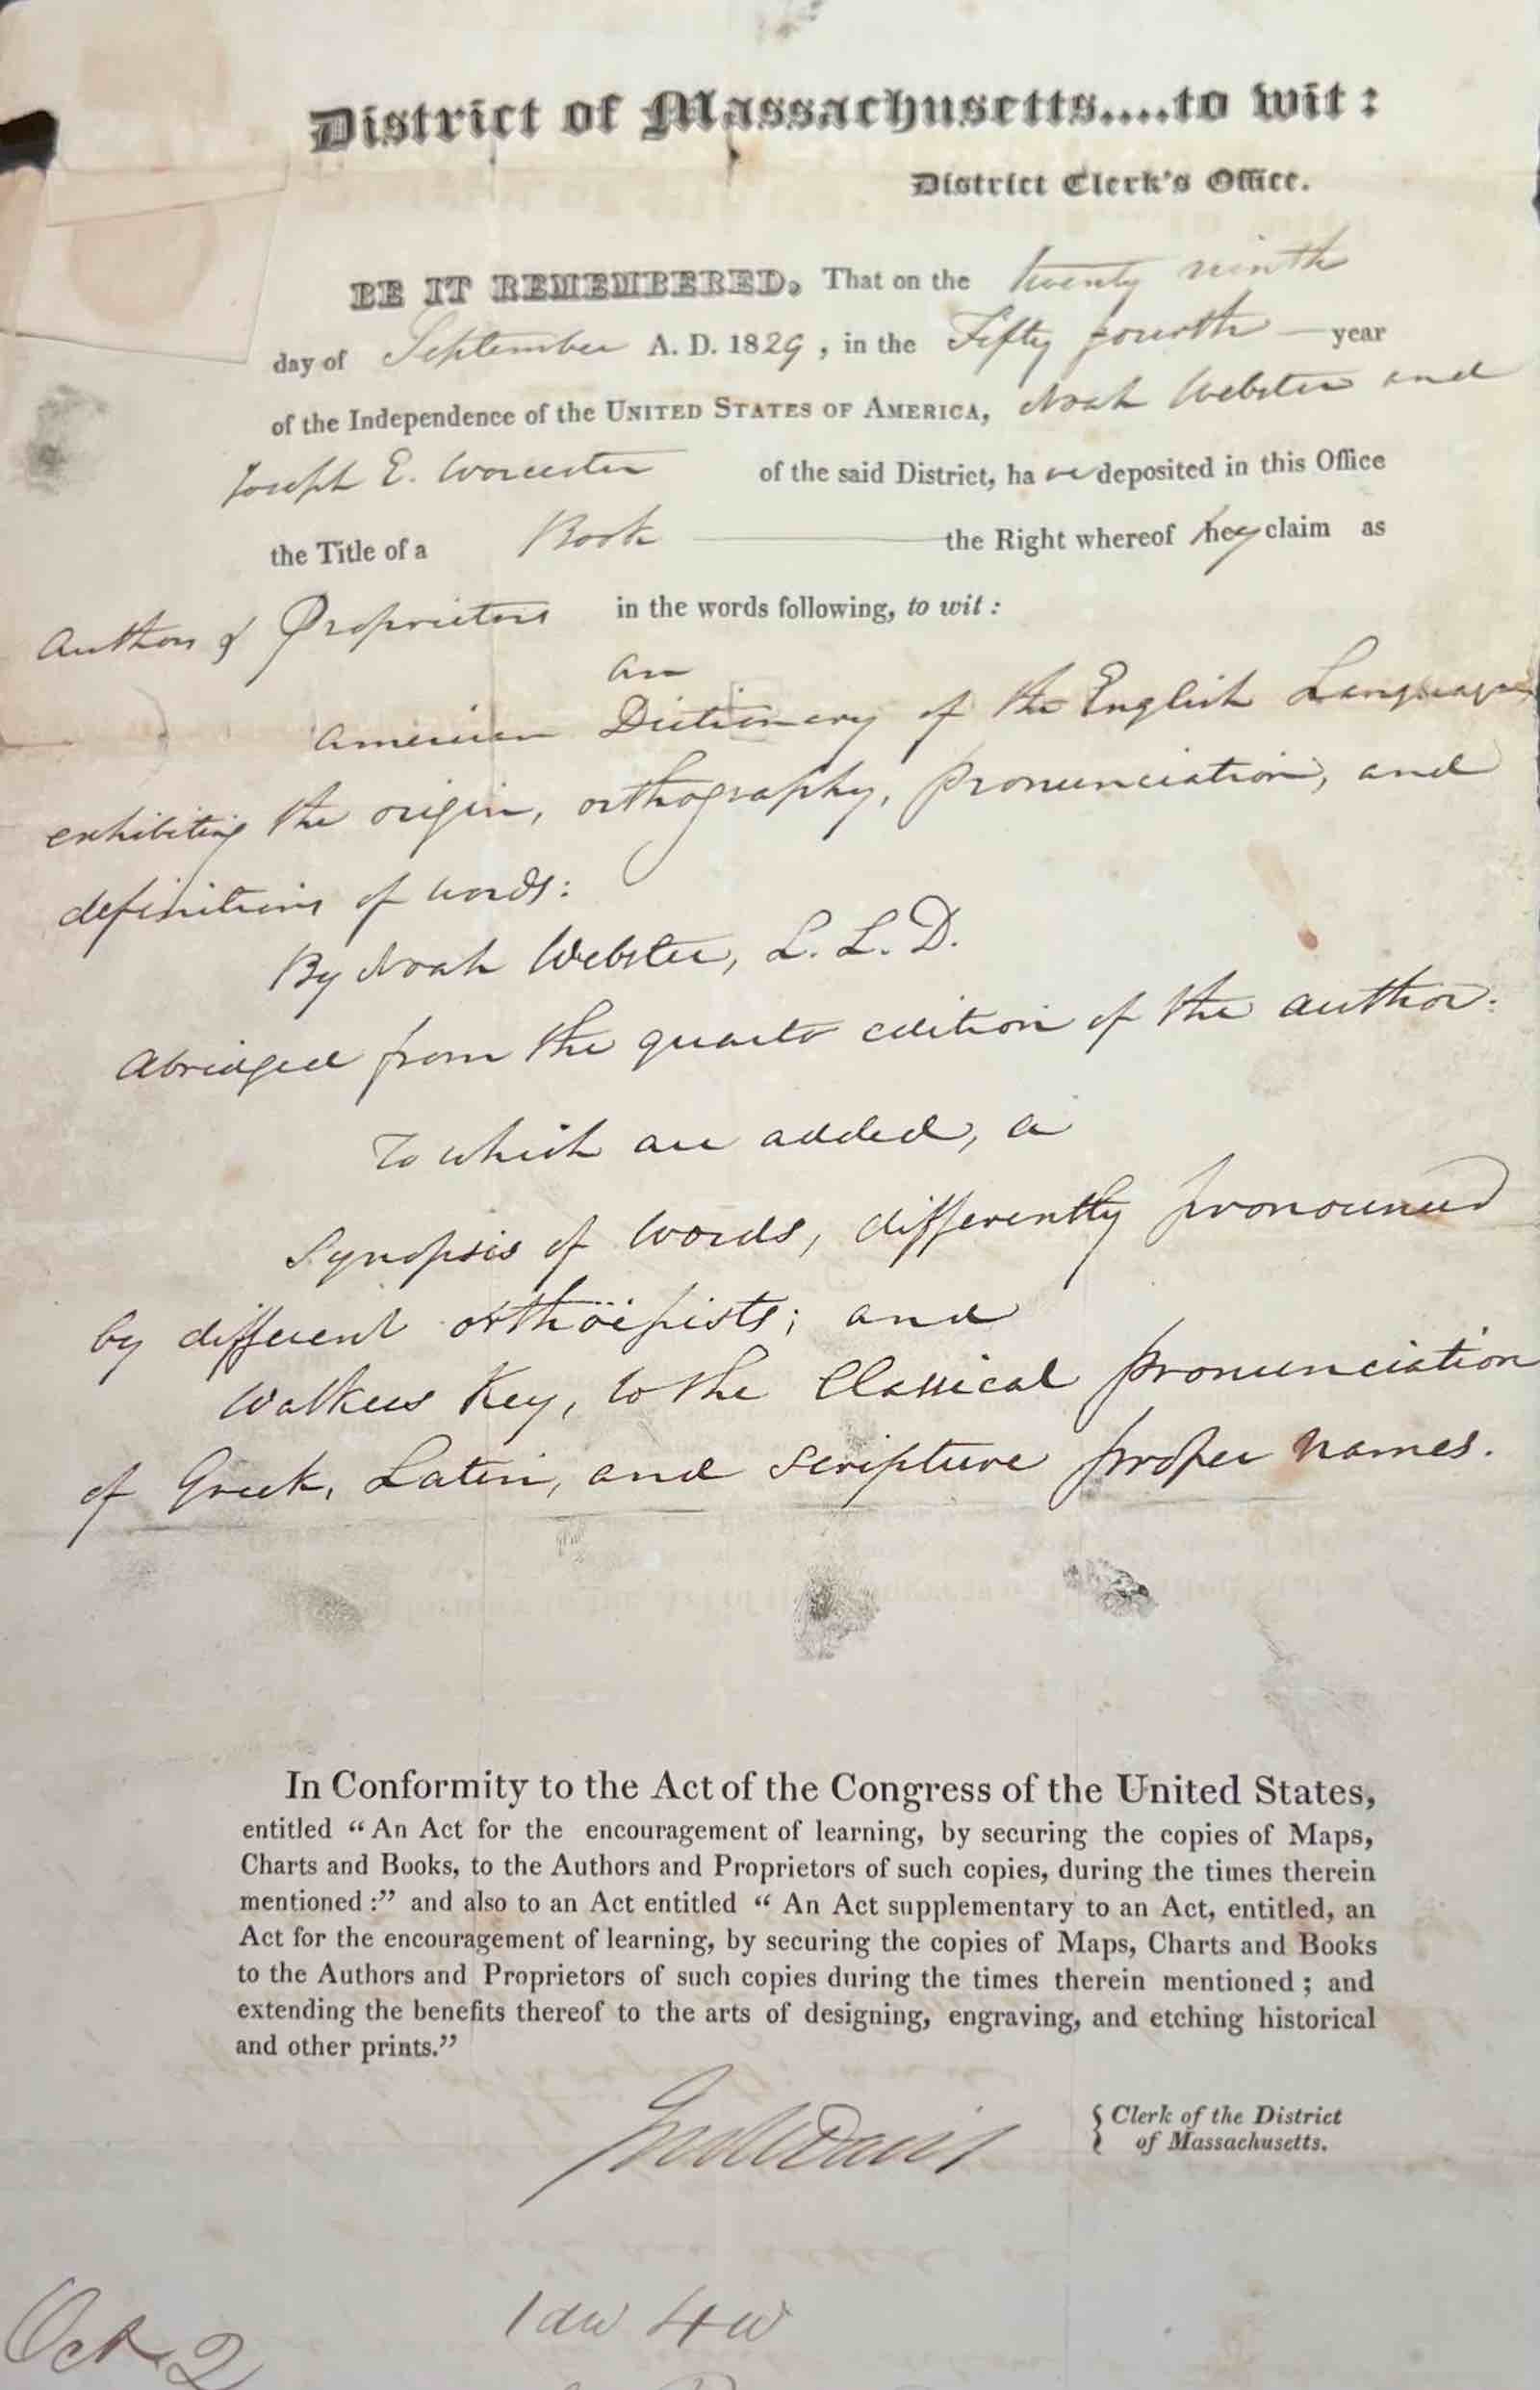 District of Massachusetts....to wit:
District Clerk's Office.
BE IT REMEMBERED, That on the twenty ninth
day of September A. D. 1829, in the Fifty fourth — year
of the Independence of the UNITED STATES OF AMERICA, Noah Webster and
Joseph E. Worcester of the said District, ha ve deposited in this Office
the Title of a Book — the Right whereof they claim as
Authors & Proprietors in the words following, to wit:
An
American Dictionary of the English Language
exhibiting the origin, orthography, pronunciation, and
definitions of words:
By Noah Webster, L. L. D.
Abridged from the quarto edition of the author:
To which are added, a
Synopsis of words, differently pronounced
by different orthöepists; and
Walkers Key, to the Classical pronunciation
of Greek, Latin, and scripture proper names.
In Conformity to the Act of the Congress of the United States,
entitled “An Act for the encouragement of learning, by securing the copies of Maps,
Charts and Books, to the Authors and Proprietors of such copies, during the times therein
mentioned:” and also to an Act entitled “An Act supplementary to an Act, entitled, an
Act for the encouragement of learning, by securing the copies of Maps, Charts and Books
to the Authors and Proprietors of such copies during the times therein mentioned; and
extending the benefits thereof to the arts of designing, engraving, and etching historical
and other prints.”
Jno W Davis { Clerk of the District
of Massachusetts.
1aw 4w
Oct. 2